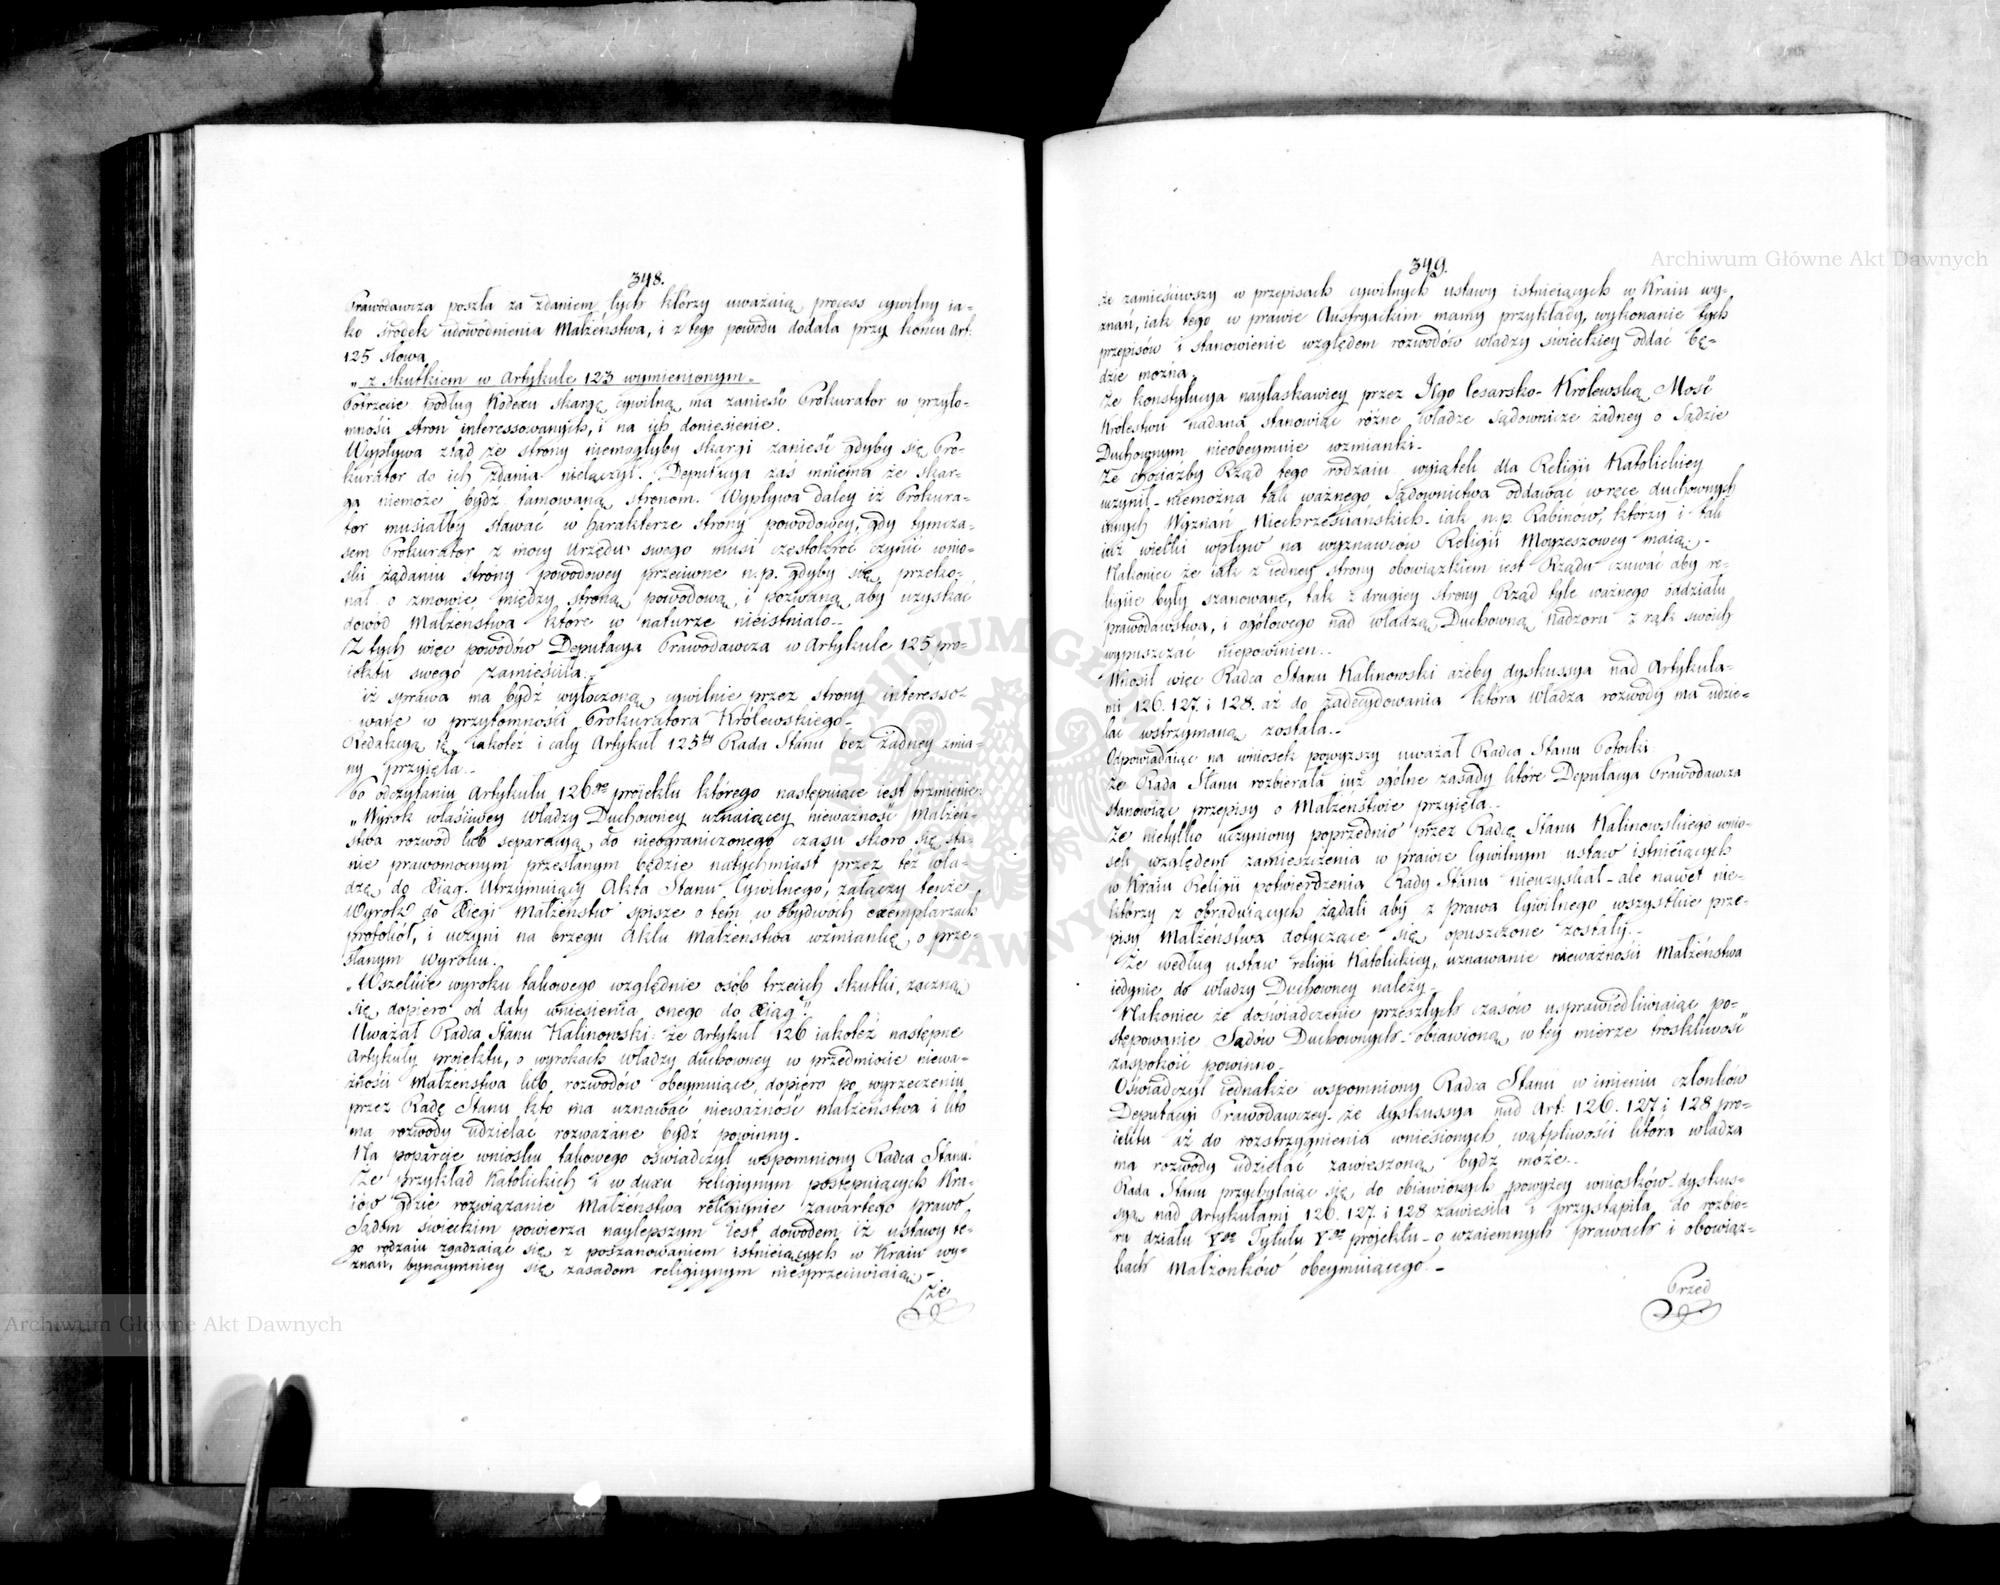 348.
Prawodawcza poszła za zdaniem tych którzy uważaią process cywilny ia-
ko środek udowodnienia Małżeństwa, i z tego powodu dodała przy końcu Art:
125 słowa
„z skutkiem w Artykule 123 wymienionym„
Potrzecie podług Kodexu skargę cywilną ma zanieść Prokurator w przyto-
mności stron interessowanych, i na ich doniesienie.
Wypływa ztąd że strony niemogłyby skargi zanieść gdyby się Pro-
kurator do ich zdania niełączył. Deputacya zaś mniema że skar-
ga niemoże bydź tamowaną stronom. Wypływa daley iż Prokura-
tor musiałby stawać w charakterze strony powodowey, gdy tymcza-
sem Prokurator z mocy Urzędu swego musi częstokroć czynić wnio-
ski żądaniu strony powodowey przeciwne n.p. gdyby się przeko-
nał o zmowie między stroną powodową i pozwaną aby uzyskać
dowód Małżeństwa które w naturze nieistniało.-
Z tych więc powodów Deputacya Prawodawcza w Artykule 125 pro-
iektu swego zamieściła.-
iż sprawa ma bydź wytoczoną cywilnie przez strony interesso-
wane w przytomności Prokuratora Królewskiego.-
Redakcyą tę iakoteż i cały Artykuł 125ty Rada Stanu bez żadney zmia-
ny przyięła.-
Po odczytaniu Artykułu 126go proiektu którego następuiące iest brzmienie:
„Wyrok właściwey Władzy Duchowney uznaiącey nieważność Małżeń-
stwa rozwód lub separacyą do nieograniczonego czasu skoro się sta-
nie prawomocnym przesłanym będzie natychmiast przez też wła-
dzę do Xiąg. Utrzymuiący Akta Stanu Cywilnego, załączy tenże
Wyrok do Xięgi Małżeństw spisze o tem w obydwóch exemplarzach
protokół, i uczyni na brzegu Aktu Małżeństwa wzmiankę o prze-
słanym wyroku.
„Wszelkie wyroku takowego względnie osób trzecich skutki, zaczną
się dopiero od daty wniesienia onego do Xiąg."
Uważał Radca Stanu Kalinowski: że Artykuł 126 iakoteż następne
Artykuły proiektu, o wyrokach władzy duchowney w przedmiocie niewa-
żności Małżeństwa lub rozwodów obeymuiące, dopiero po wyrzeczeniu
przez Radę Stanu kto ma uznawać nieważność małżeństwa i kto
ma rozwody udzielać rozważane bydź powinny.-
Na poparcie wniosku takowego oświadczył wspomniony Radca Stanu:
Że przykład Katolickich i w duxu religiynym postępuiących Kra-
iów gdzie rozwiązanie Małżeństwa religiynie zawartego prawo
Sądom świeckim powierza naylepszym iest dowodem, iż ustawy te-
go rodzaiu zgadzaiąc się z poszanowaniem istnieiących w Kraiu wy-
znań, bynaymniey się zasadom religiynym niesprzeciwiaią.-
Że
349.
że zamieściwszy w przepisach cywilnych ustawy istnieiących w Kraiu wy-
znań, iak tego w prawie Austryackim mamy przykłady, wykonanie tych
przepisów i stanowienie względem rozwodów władzy świeckiey oddać bę-
dzie można.
Że konstytucya nayłaskawiey przez Jego Cesarsko-Królewską Mość
Królestwu nadana stanowiąc różne Władze Sądownicze żadney o Sądzie
Duchownym nieobeymuie wzmianki.-
Że chociażby Rząd tego rodzaiu wyiątek dla Religii Katolickiey
uczynił - niemożna tak ważnego Sądownictwa oddawać w ręce duchownych
innych Wyznań Niechrześciańskich - iak n.p. Rabinów, którzy i tak
iuż wielki wpływ na wyznawców Religii Moyżeszowey maią.-
Nakoniec że iak z iedney strony obowiązkiem iest Rządu czuwać aby re-
ligiie były szanowane, tak z drugiey strony Rząd tyle ważnego oddziału
prawodawstwa, i ogółowego nad władzą Duchowną nadzoru z rąk swoich
wypuszczać niepowinien.-
Wnosił więc Radca Stanu Kalinowski ażeby dyskussya nad Artykuła-
mi 126. 127. i 128. aż do zadecydowania która władza rozwody ma udzie-
lać wstrzymaną została.-
Odpowiadaiąc na wniosek powyższy uważał Radca Stanu Potocki:
Że Rada Stanu rozbierała iuż ogólne zasady które Deputacya Prawodawcza
stanowiąc przepisy o Małżeństwie przyięła.-
Że nietylko uczyniony poprzednio przez Radcę Stanu Kalinowskiego wnio-
sek względem zamieszczenia w prawie Cywilnym ustaw istnieiących
w Kraiu Religii potwierdzenia Rady Stanu nieuzyskał - ale nawet nie-
którzy z obraduiących żądali aby z prawa Cywilnego wszystkie prze-
pisy Małżeństwa dotyczące się opuszczone zostały.-
Że według ustaw religii Katolickiey, uznawanie nieważności Małżeństwa
iedynie do władzy Duchowney należy.-
Nakoniec że doświadczenie przeszłych czasów usprawiedliwiaiąc po-
stępowanie Sądów Duchownych - obiawioną w tey mierze troskliwość
zaspokoić powinno.-
Oświadczył iednakże wspomniony Radca Stanu w imieniu członków
Deputacyi Prawodawczey - że dyskussya nad Art: 126. 127 i 128 pro-
iektu aż do rozstrzygnienia wniesionych wątpliwości która władza
ma rozwody udzielać zawieszoną bydź może.-
Rada Stanu przychylaiąc się do obiawionych powyżey wniosków - dyskus-
syą nad Artykułami 126. 127. i 128 zawiesiła i przystąpiła do rozbio-
ru działu Vgo Tytułu Vgo projektu - o wzaiemnych prawach i obowiąz-
kach Małżonków obeymuiącego.-
Przed
Archiwum Główne Akt Dawnych
Archiwum Główne Akt Dawnych
ARCHIWUM GŁÓWNE AKT DAWNYCH